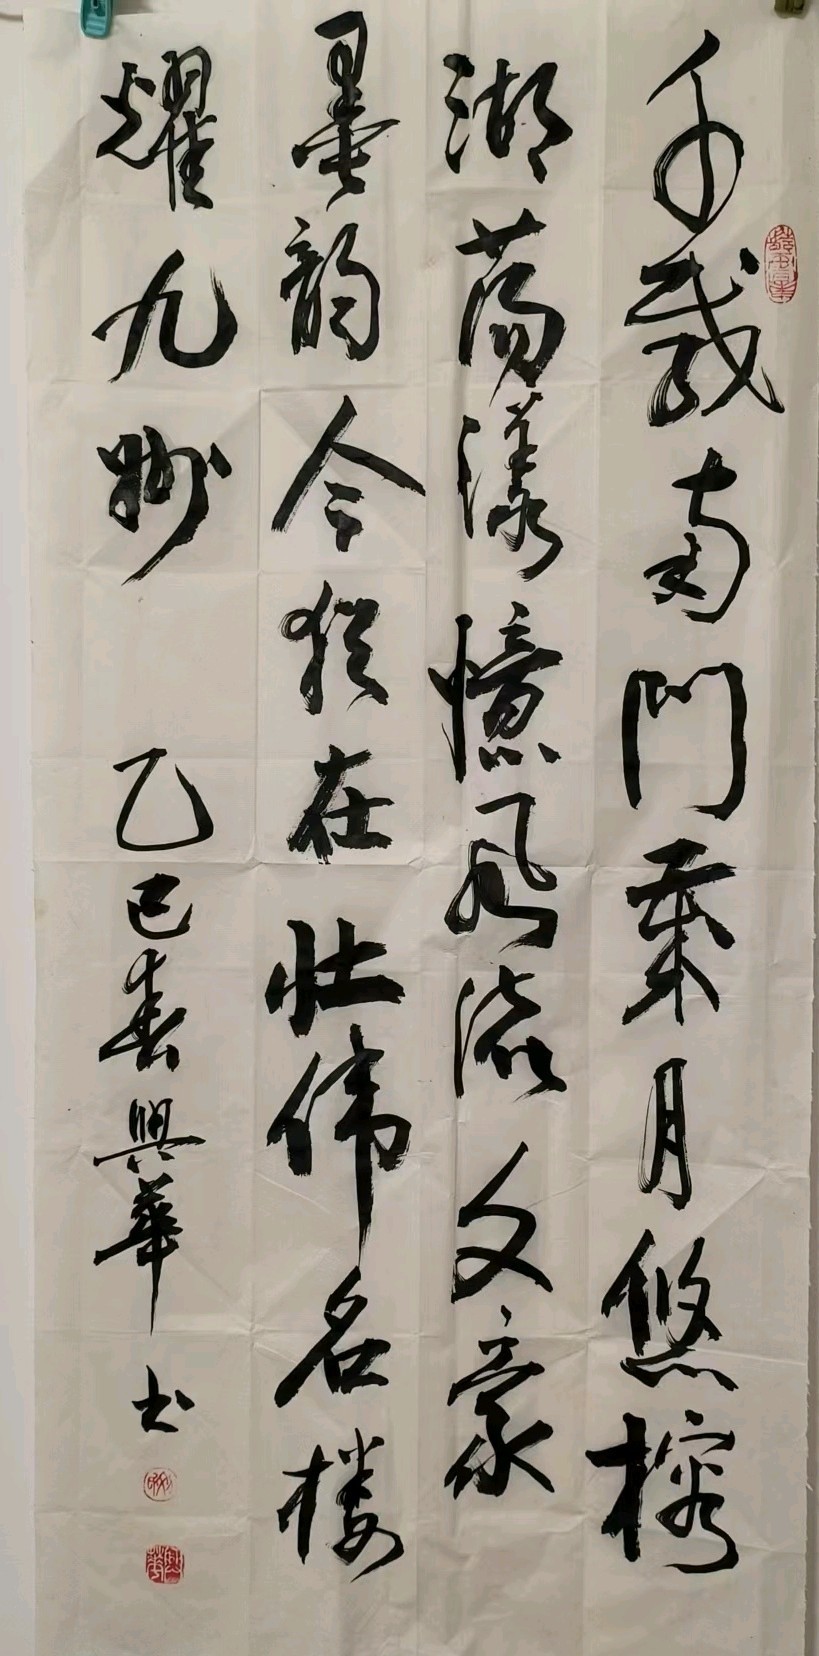 千载南门叶月悠榕
湖荡漾忆风流文豪
墨韵今犹在壮伟名楼
耀九州 乙巳春興華书